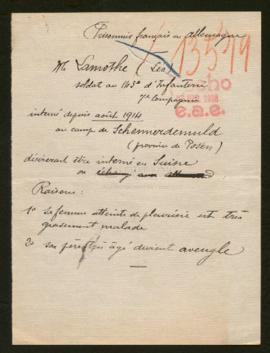 Prisonniers français en Allemagne
13519
Mr Lamothe (Léo)
soldat au 143e d'Infanterie
7e Compagnie
echo
e.a.e.
interné depuis août 1914
au camp de
(province de Posen)
désirerait être interné en Suisse
ou
Raisons :
1° sa femme atteinte de pleurésie est très
gravement malade
2° son père âgé devient aveugle